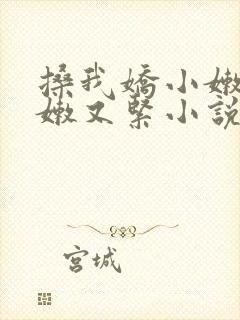 搡我嬌小嫩
嫩又緊小說
宮城